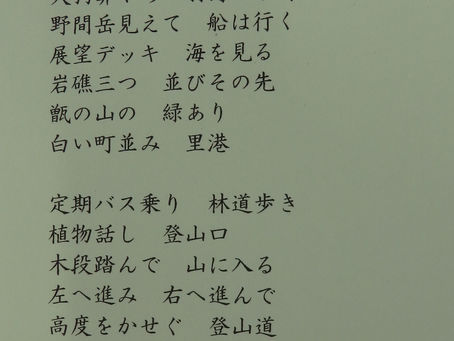 野間岳見えて　船は行く
展望デッキ　海を見る
岩礁三つ　並びその先
甑の山の　緑あり
白い町並み　里港

定期バス乗り　林道歩き
植物話し　登山口
木段踏んで　山に入る
左へ進み　右へ進んで
高度をかせぐ　登山道